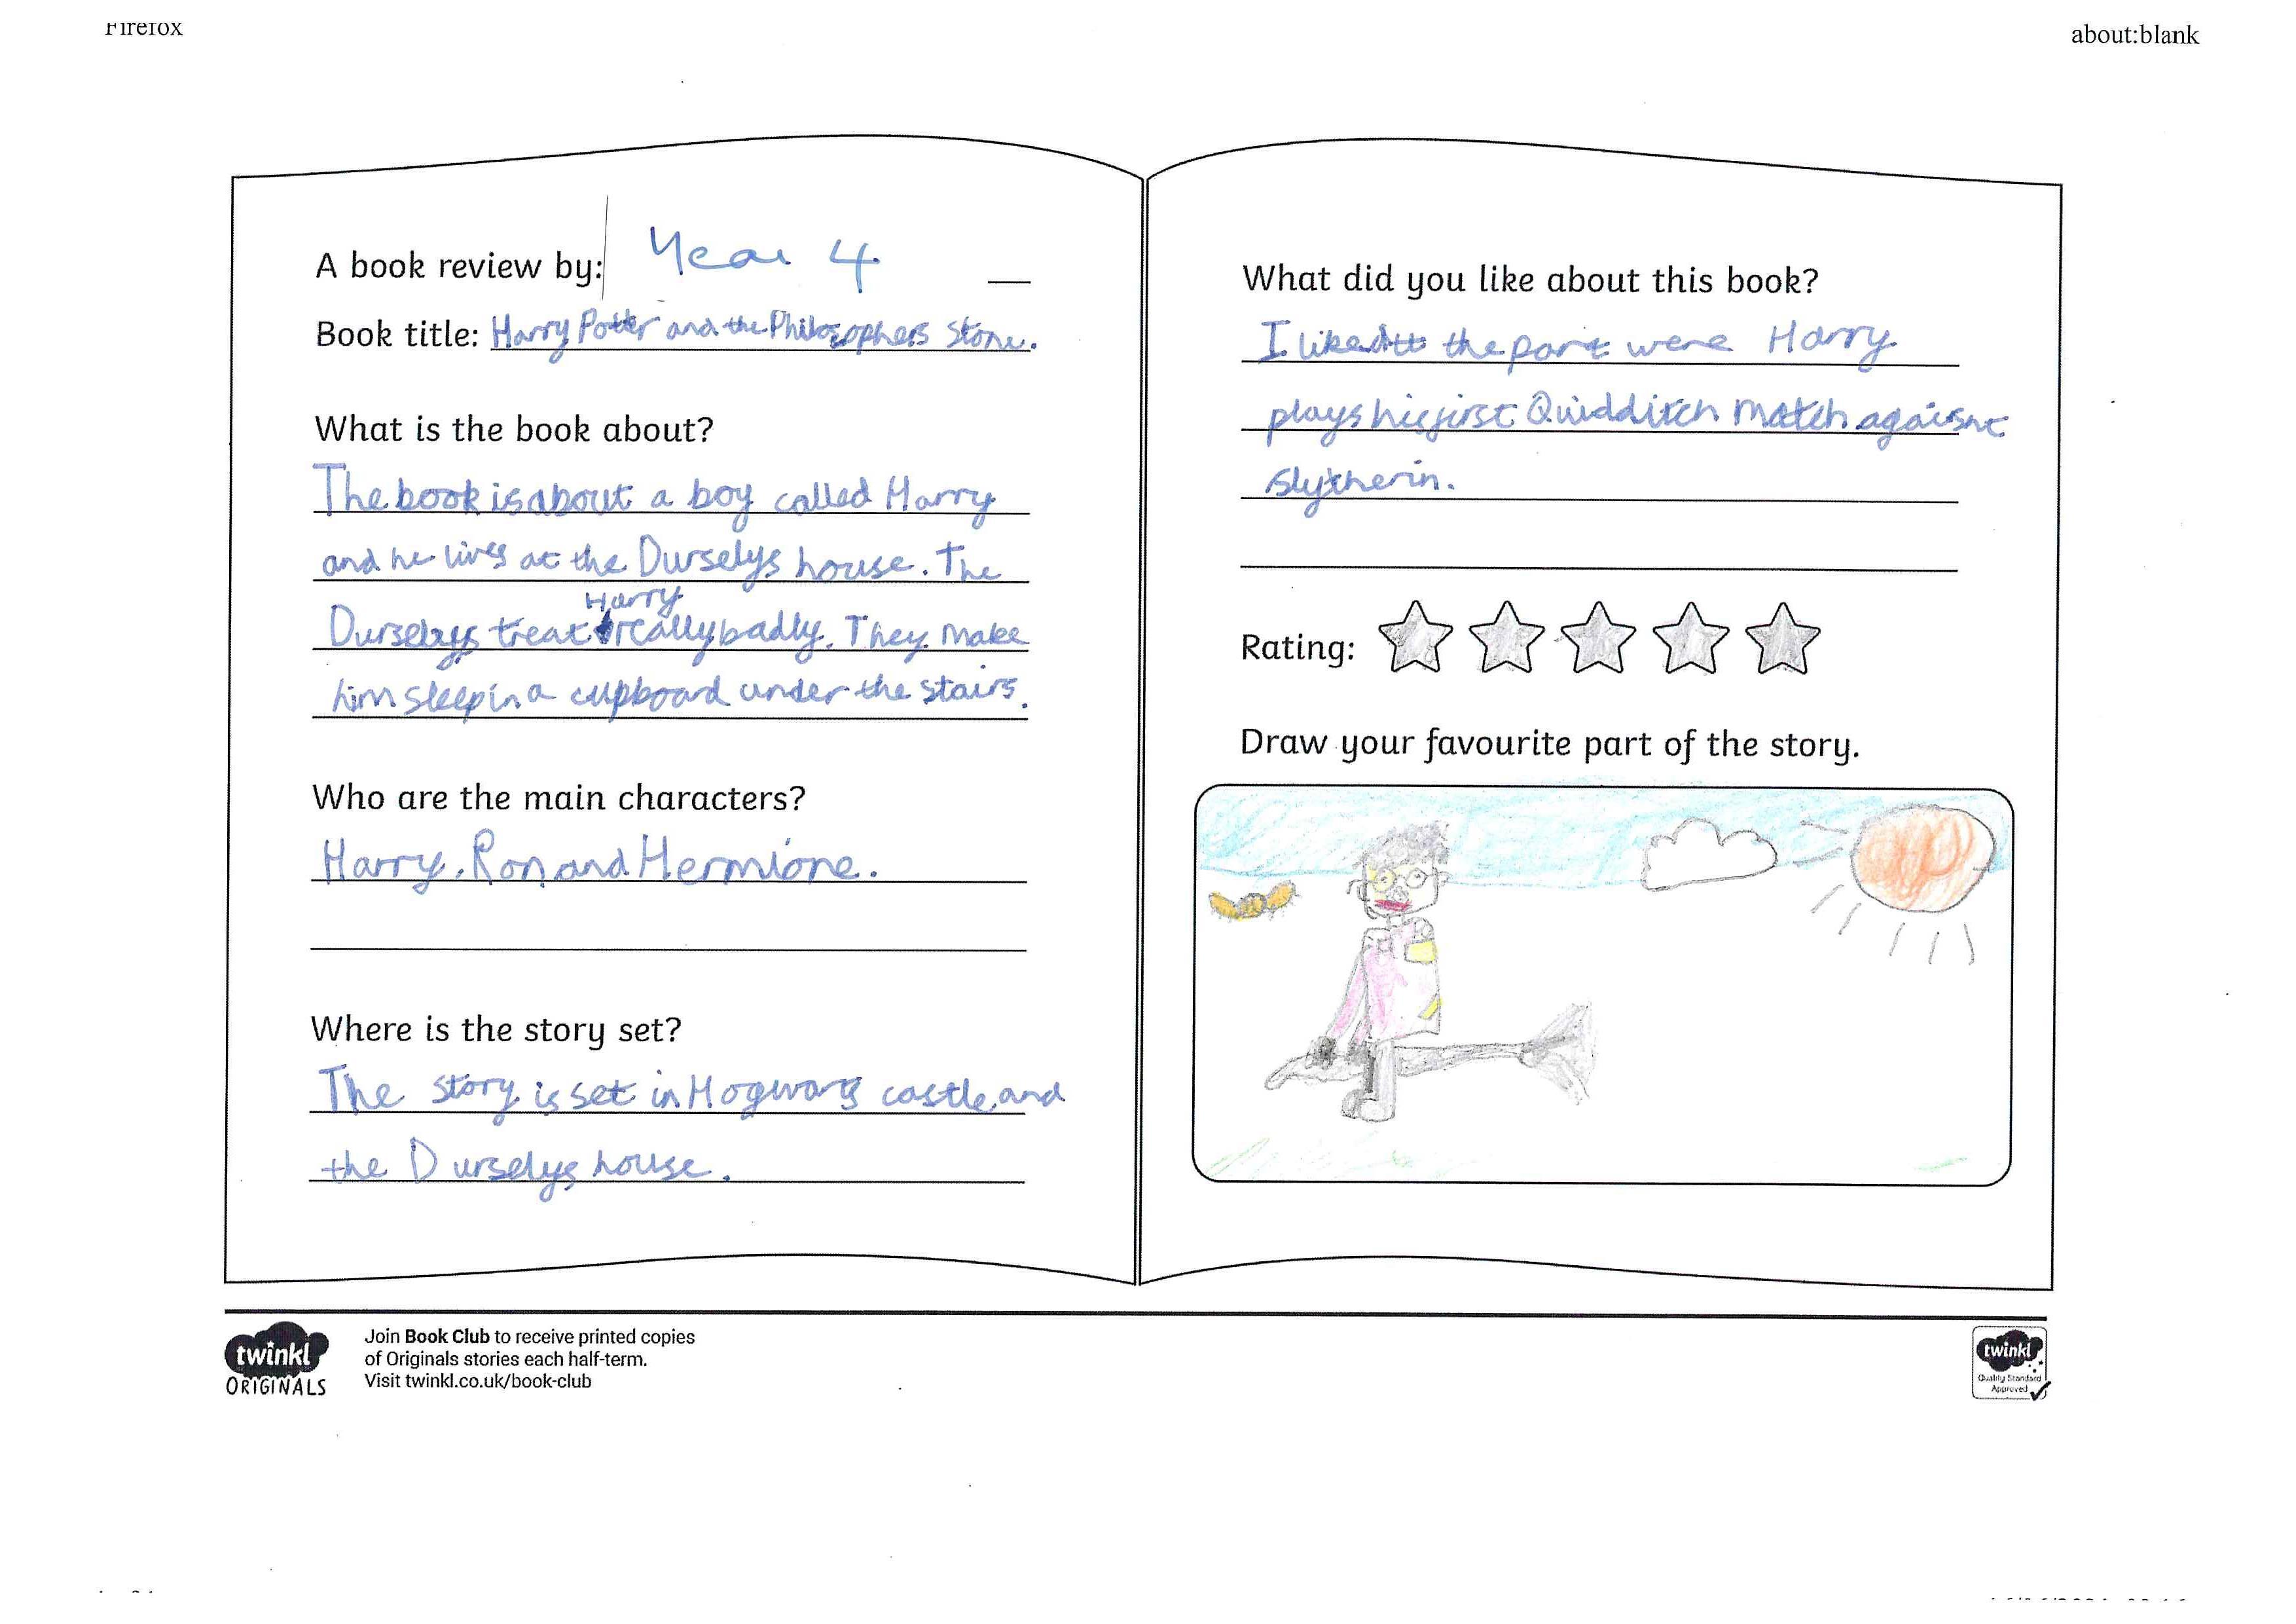 Firefox
about:blank
A book review by: Year 4
Book title: Harry Potter and the Philosophers Stone.
What is the book about?
The book is about a boy called Harry
and he lives at the Durselys house. The
Harry
Durselys treat really badly. They make
him sleep in a cupboard under the stairs.
Who are the main characters?
Harry, Ron and Hermione.
Where is the story set?
The story is set in Hogwarts castle and
the Durselys house.
What did you like about this book?
I liked the part were Harry
plays his first Quidditch match against
Slytherin.
Rating:
Draw your favourite part of the story.
twinkl
ORIGINALS
Join Book Club to receive printed copies
of Originals stories each half-term.
Visit twinkl.co.uk/book-club
twinkl
Quality Standard
Approved